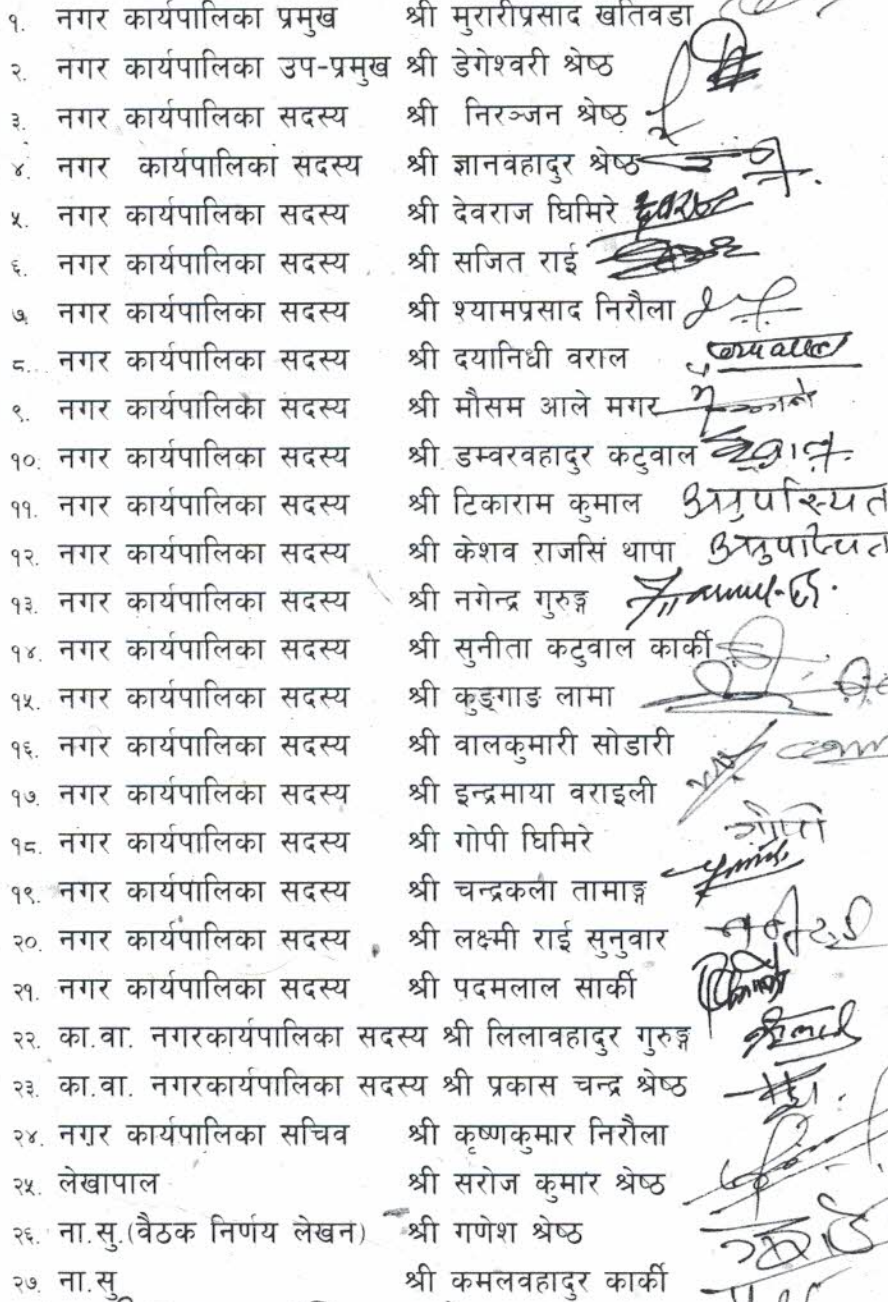 १. नगर कार्यपालिका प्रमुख श्री मुरारीप्रसाद खतिवडा
२. नगर कार्यपालिका उप-प्रमुख श्री डेगेश्वरी श्रेष्ठ
३. नगर कार्यपालिका सदस्य श्री निरञ्जन श्रेष्ठ
४. नगर कार्यपालिका सदस्य श्री ज्ञानवहादुर श्रेष्ठ
५. नगर कार्यपालिका सदस्य श्री देवराज घिमिरे
६. नगर कार्यपालिका सदस्य श्री सजित राई
७. नगर कार्यपालिका सदस्य श्री श्यामप्रसाद निरौला
८. नगर कार्यपालिका सदस्य श्री दयानिधी वराल
९. नगर कार्यपालिका सदस्य श्री मौसम आले मगर
१०. नगर कार्यपालिका सदस्य श्री डम्वरवहादुर कटुवाल
११. नगर कार्यपालिका सदस्य श्री टिकाराम कुमाल अनुपस्थित
१२. नगर कार्यपालिका सदस्य श्री केशव राजसिं थापा अनुपस्थित
१३. नगर कार्यपालिका सदस्य श्री नगेन्द्र गुरुङ्ग
१४. नगर कार्यपालिका सदस्य श्री सुनीता कटुवाल कार्की
१५. नगर कार्यपालिका सदस्य श्री कुङ्गाङ लामा
१६. नगर कार्यपालिका सदस्य श्री वालकुमारी सोडारी
१७. नगर कार्यपालिका सदस्य श्री इन्द्रमाया वराइली
१८. नगर कार्यपालिका सदस्य श्री गोपी घिमिरे गोपी
१९. नगर कार्यपालिका सदस्य श्री चन्द्रकला तामाङ्ग
२०. नगर कार्यपालिका सदस्य श्री लक्ष्मी राई सुनुवार
२१. नगर कार्यपालिका सदस्य श्री पदमलाल सार्की
२२. का.वा. नगरकार्यपालिका सदस्य श्री लिलावहादुर गुरुङ्ग
२३. का.वा. नगरकार्यपालिका सदस्य श्री प्रकास चन्द्र श्रेष्ठ
२४. नगर कार्यपालिका सचिव श्री कृष्णकुमार निरौला
२५. लेखापाल श्री सरोज कुमार श्रेष्ठ
२६. ना.सु.(वैठक निर्णय लेखन) श्री गणेश श्रेष्ठ
२७. ना.सु श्री कमलवहादुर कार्की